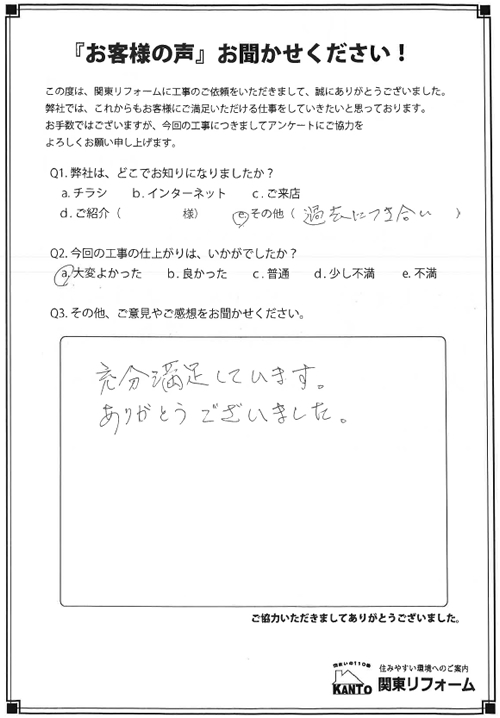 『お客様の声』お聞かせください！
この度は、関東リフォームに工事のご依頼をいただきまして、誠にありがとうございました。
弊社では、これからもお客様にご満足いただける仕事をしていきたいと思っております。
お手数ではございますが、今回の工事につきましてアンケートにご協力を
よろしくお願い申し上げます。
Q1. 弊社は、どこでお知りになりましたか？
a. チラシ　b. インターネット　c. ご来店
d. ご紹介（　　　様）　e. その他（過去につき合い）
Q2. 今回の工事の仕上がりは、いかがでしたか？
a. 大変よかった　b. 良かった　c. 普通　d. 少し不満　e. 不満
Q3. その他、ご意見やご感想をお聞かせください。
充分満足しています。
ありがとうございました。
ご協力いただきましてありがとうございました。
住まいの110番
KANTO
住みやすい環境へのご案内
関東リフォーム